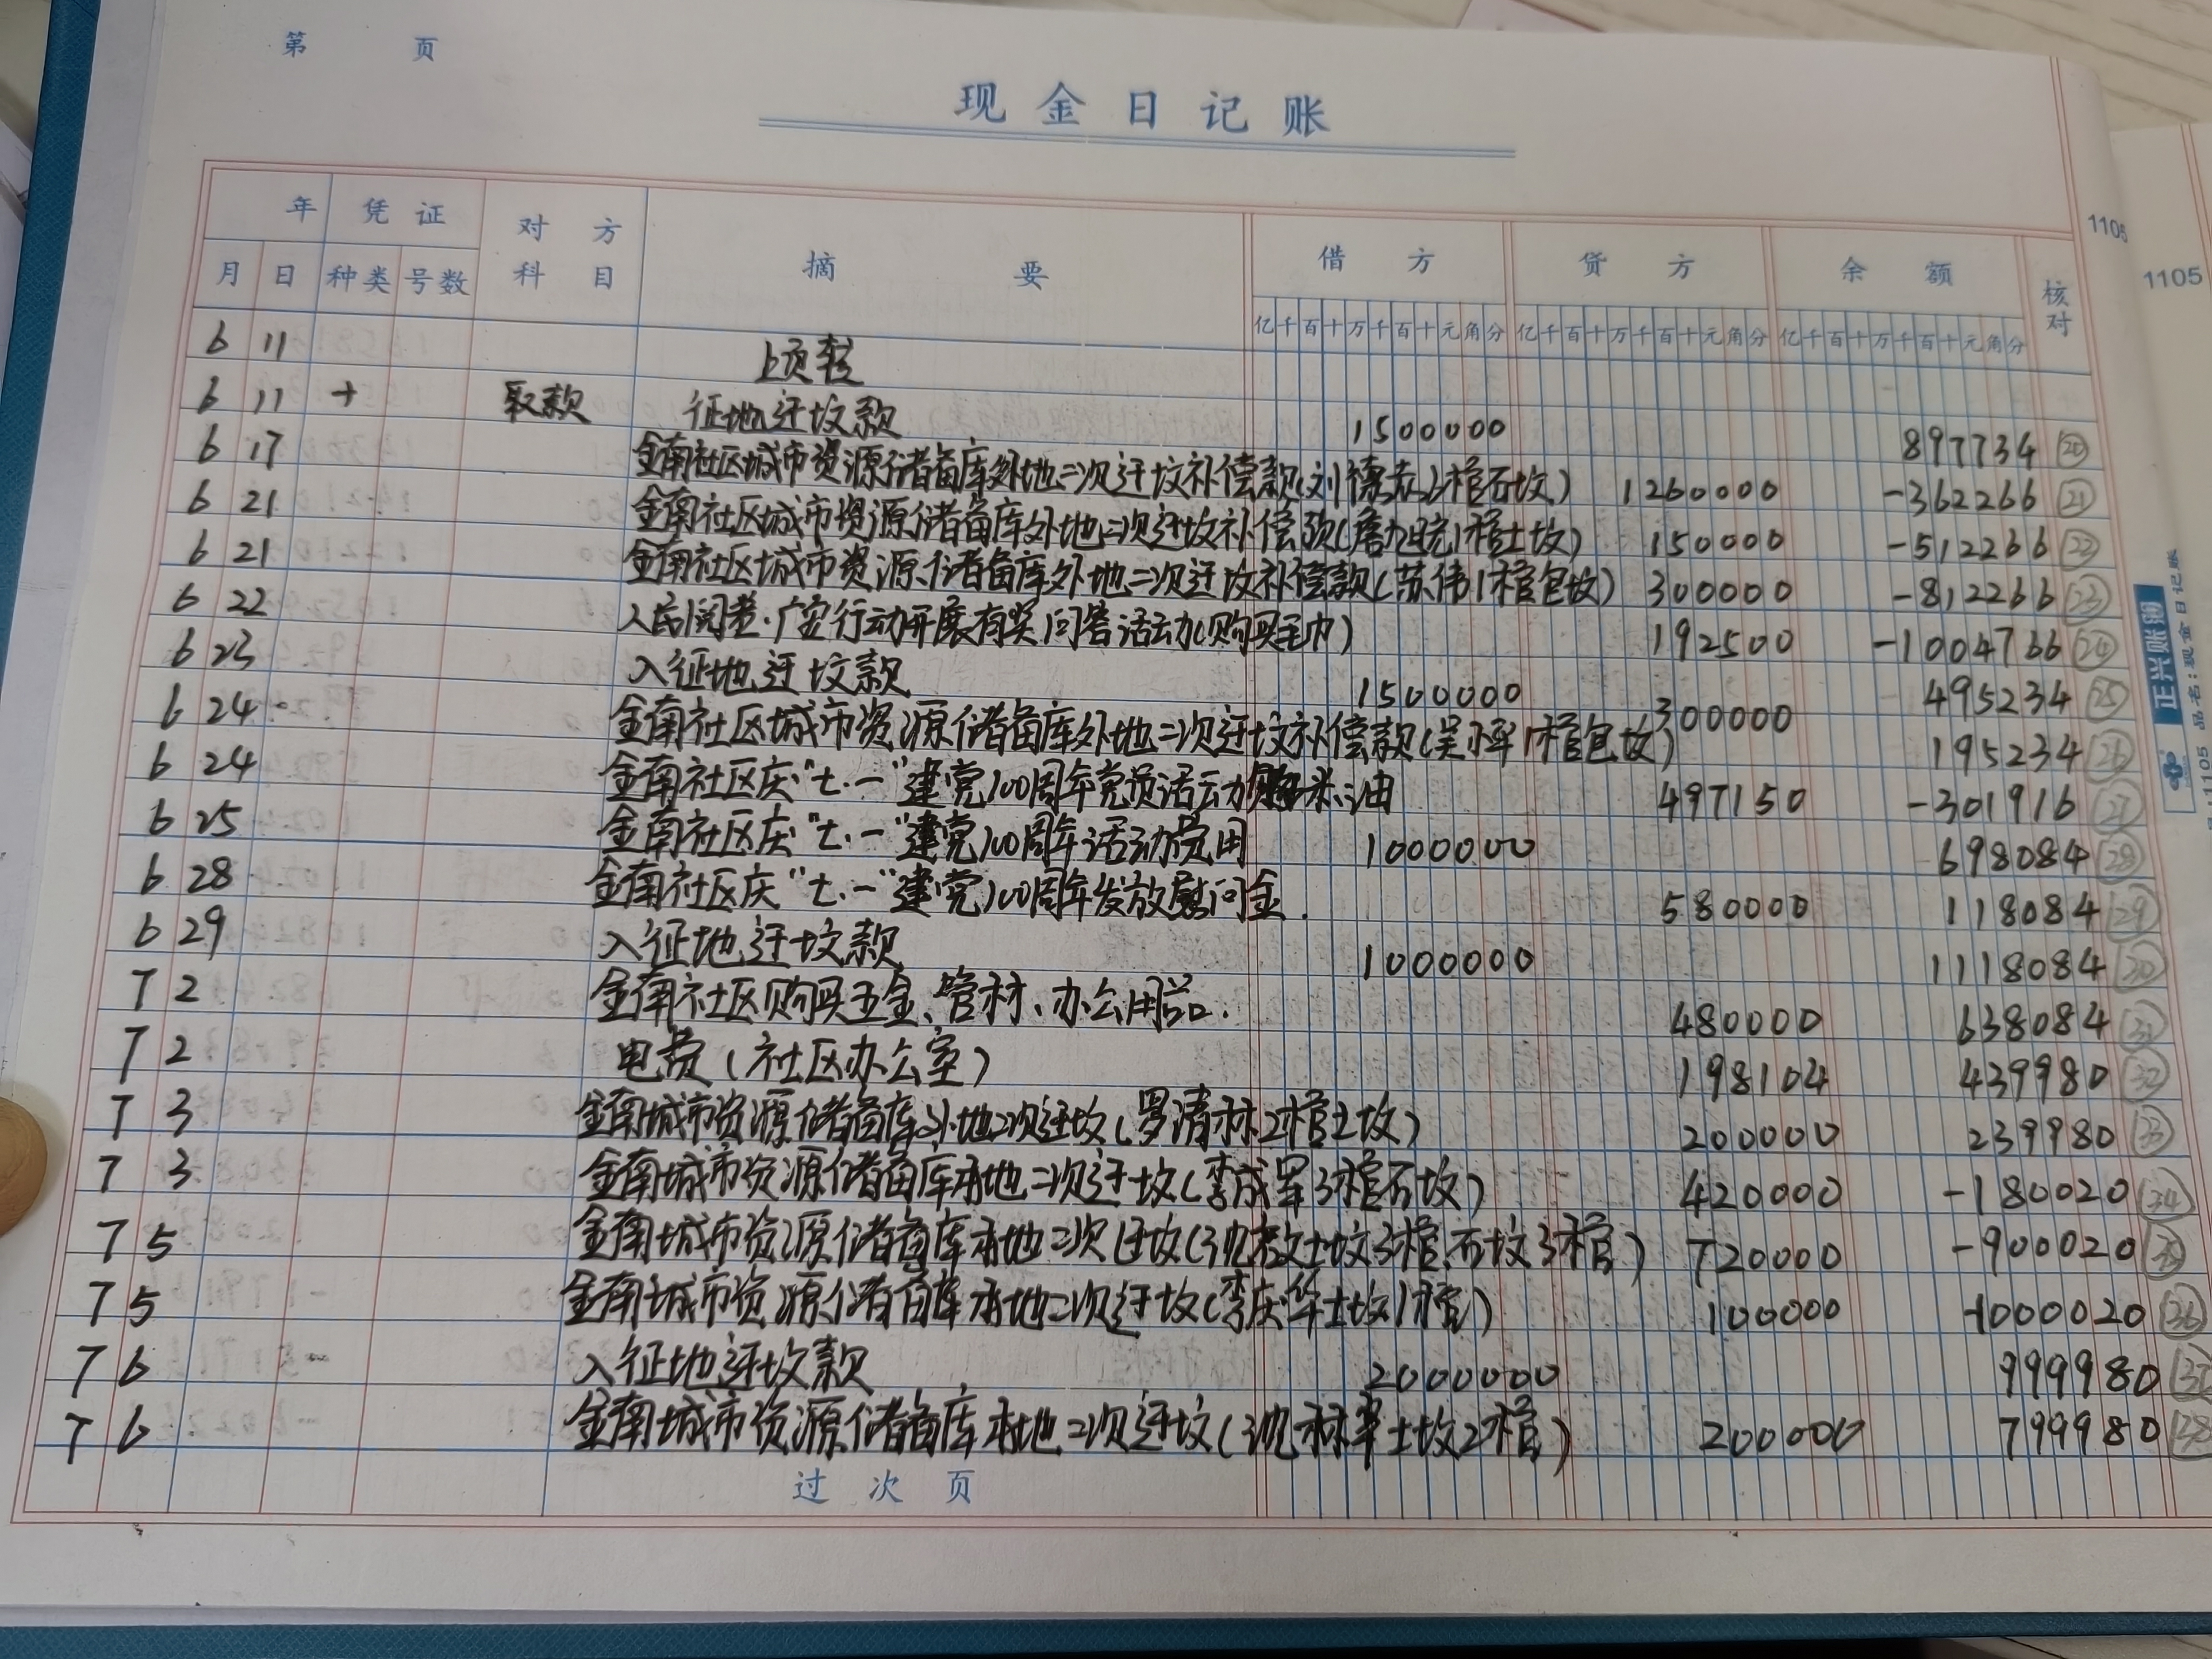 第 页
现金日记账
年 凭证 对方科目 摘要 借方 贷方 余额 核对
月 日 种类 号数
亿千百十万千百十元角分 亿千百十万千百十元角分 亿千百十万千百十元角分
6 11 上页转
6 11 取款 征地迁坟款 1500000 897734 ⑳
6 17 金南社区城市资源储备库外地二次迁坟补偿款(刘德 6棺石坟) 1260000 -362266 ㉑
6 21 金南社区城市资源储备库外地二次迁坟补偿款( 1棺土坟) 150000 -512266 ㉒
6 21 金南社区城市资源储备库外地二次迁坟补偿款(苏伟1棺包坟) 300000 -812266 ㉓
6 22 人民阅卷·广安行动开展有奖问答活动(购买毛巾) 192500 -1004766 ㉔
6 23 入征地迁坟款 1500000 495234 ㉕
6 24 金南社区城市资源储备库外地二次迁坟补偿款(吴小军1棺包坟) 300000 195234 ㉖
6 24 金南社区庆"七.一"建党100周年党员活动购米、油 497150 -301916 ㉗
6 25 金南社区庆"七.一"建党100周年活动费用 1000000 698084 ㉘
6 28 金南社区庆"七.一"建党100周年发放慰问金. 580000 118084 ㉙
6 29 入征地迁坟款 1000000 1118084 ㉚
7 2 金南社区购买五金、管材、办公用品. 480000 638084 ㉛
7 2 电费(社区办公室) 198104 439980 ㉜
7 3 金南城市资源储备库外地2次迁坟(罗清林2棺土坟) 200000 239980 ㉝
7 3 金南城市资源储备库本地二次迁坟(李成军3棺石坟) 420000 -180020 ㉞
7 5 金南城市资源储备库本地二次迁坟(沈 土坟3棺、石坟3棺) 720000 -900020 ㉟
7 5 金南城市资源储备库本地二次迁坟(李庆华土坟1棺) 100000 -1000020 ㊱
7 6 入征地迁坟款 2000000 999980 ㊲
7 6 金南城市资源储备库本地二次迁坟(沈林军土坟2棺) 200000 799980 ㊳
过次页
1105
1105
正兴账簿
1105 品名:现金日记账